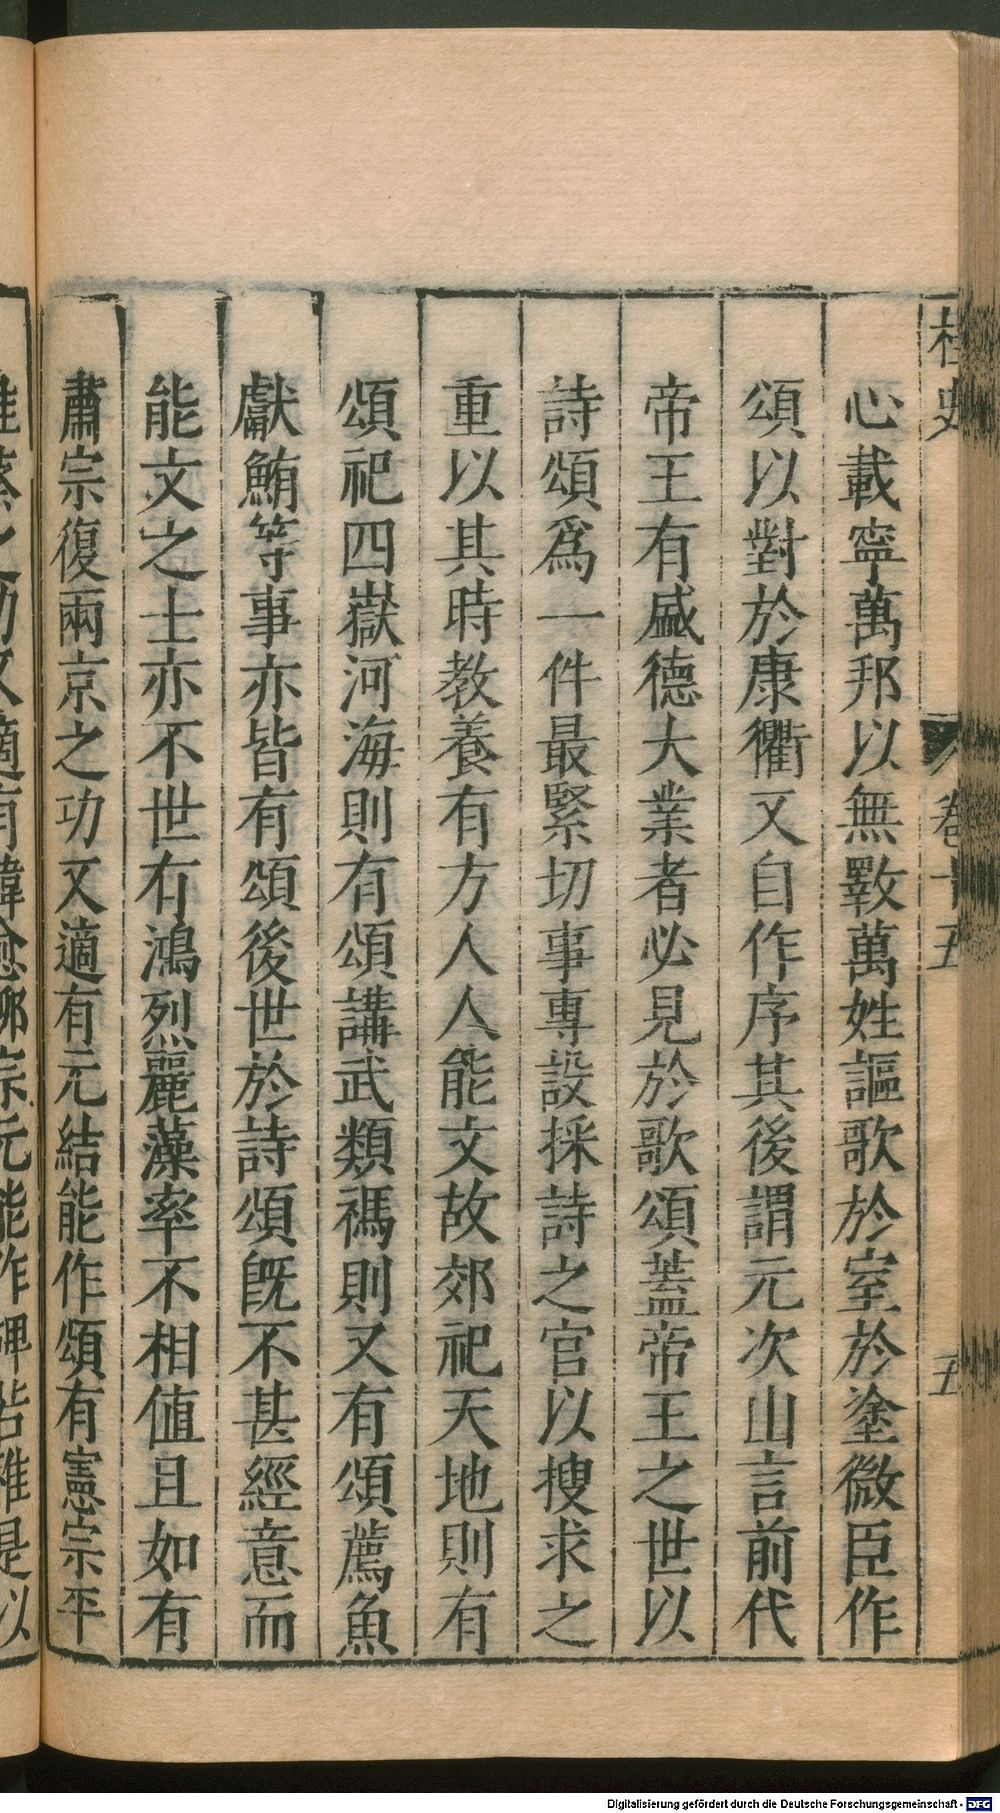 桯史
卷十五
五
心載寧萬邦以無斁萬姓謳歌於室於塗微臣作
頌以對於康衢又自作序其後謂元次山言前代
帝王有盛德大業者必見於歌頌蓋帝王之世以
詩頌爲一件最緊切事專設採詩之官以搜求之
重以其時教養有方人人能文故郊祀天地則有
頌祀四嶽河海則有頌講武類禡則又有頌薦魚
獻鮪等事亦皆有頌後世於詩頌旣不甚經意而
能文之士亦不世有鴻烈麗藻率不相值且如有
肅宗復兩京之功又適有元結能作頌有憲宗平
淮蔡之功又適有韓愈柳宗元能作碑若雅是以
Digitalisierung gefördert durch die Deutsche Forschungsgemeinschaft - DFG